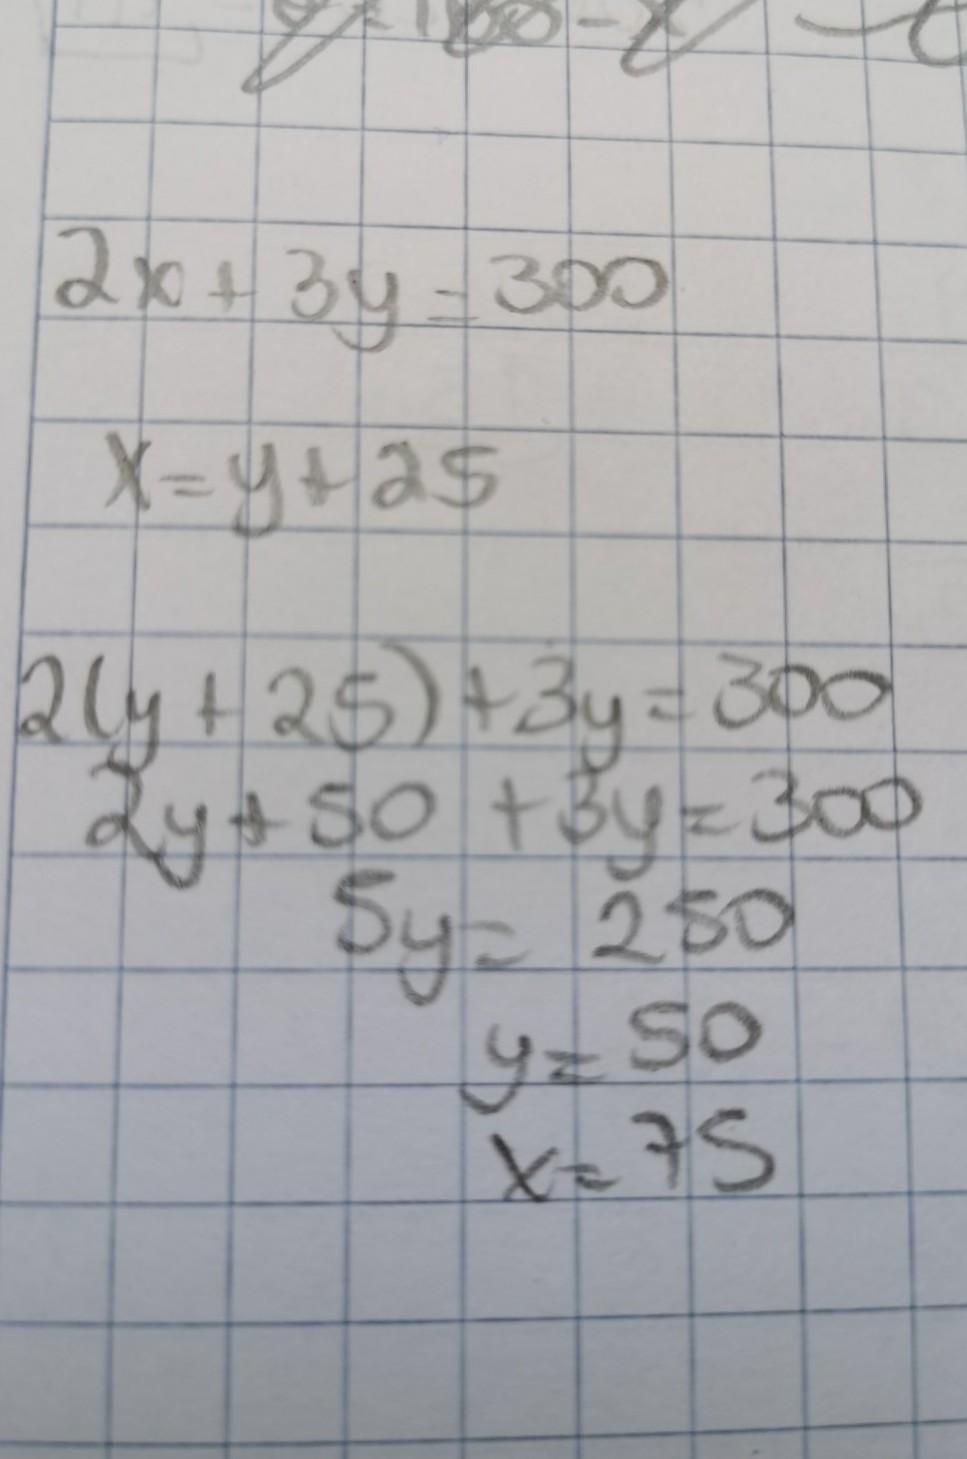 2x + 3y = 300
x = y + 25
2(y + 25) + 3y = 300
2y + 50 + 3y = 300
5y = 250
y = 50
x = 75